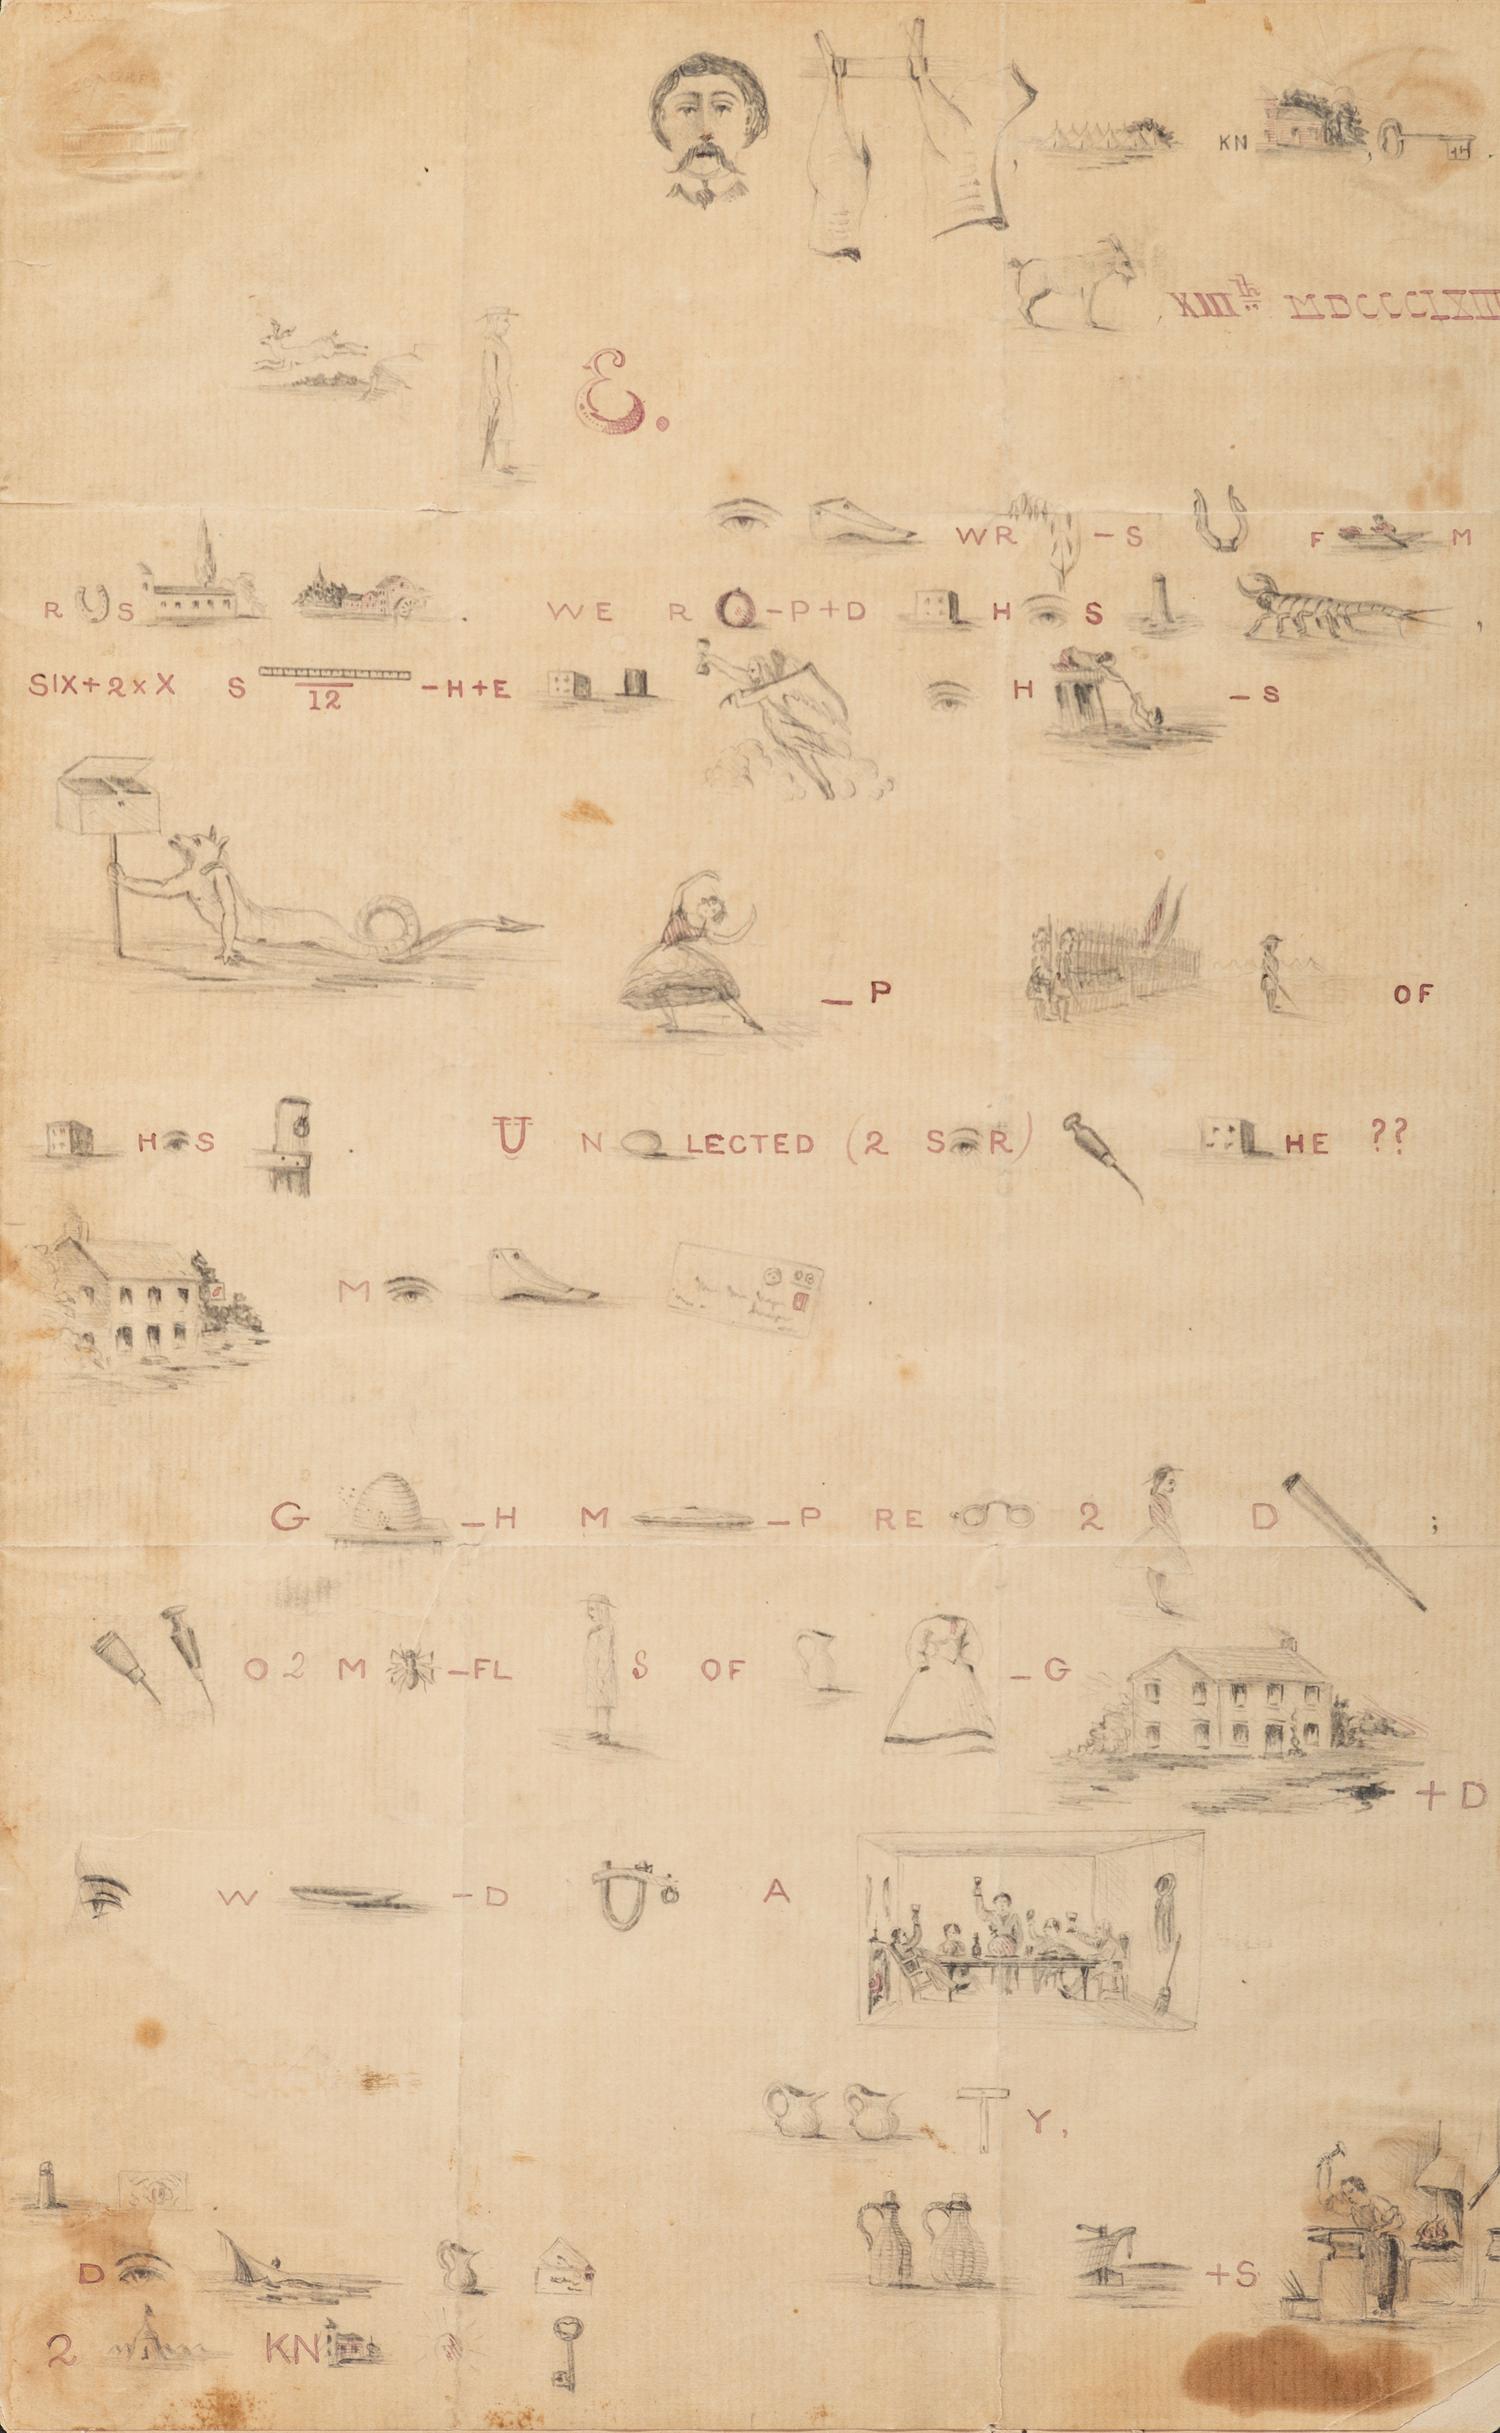 KN
XIIIth MDCCCLXIII
E.
WR - S F M
R S . WE R O - P + D H S ,
SIX + 2 x X S 12 - H + E H - S
- P OF
H S . U N LECTED (2 S R) HE ??
M
G - H M - P RE 2 D ;
O 2 M - FL S OF - G
+ D
W - D A
T Y,
D + S
2 KN